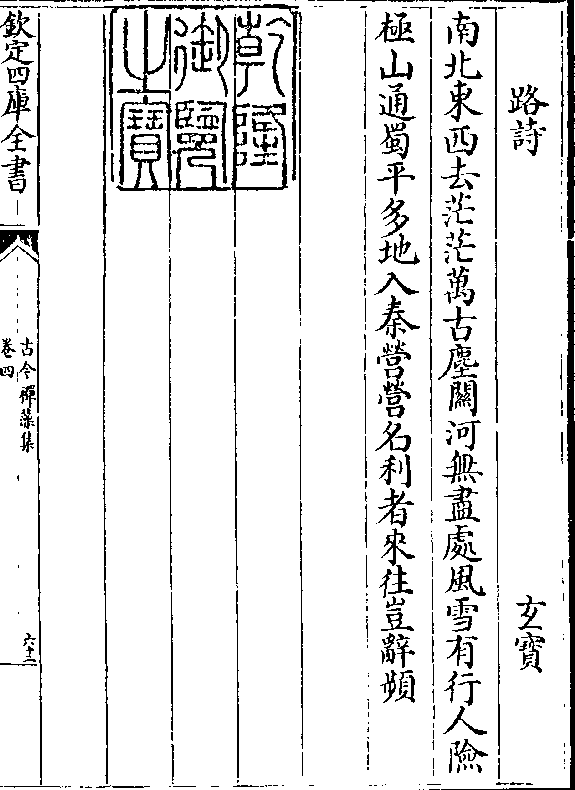 路詩　玄寶
南北東西去茫茫萬古塵關河無盡處風雪有行人險
極山通蜀平多地入秦營營名利者來往豈辭頻
乾隆
御覽
之寶
欽定四庫全書
古今禪藻集
卷四
六十二